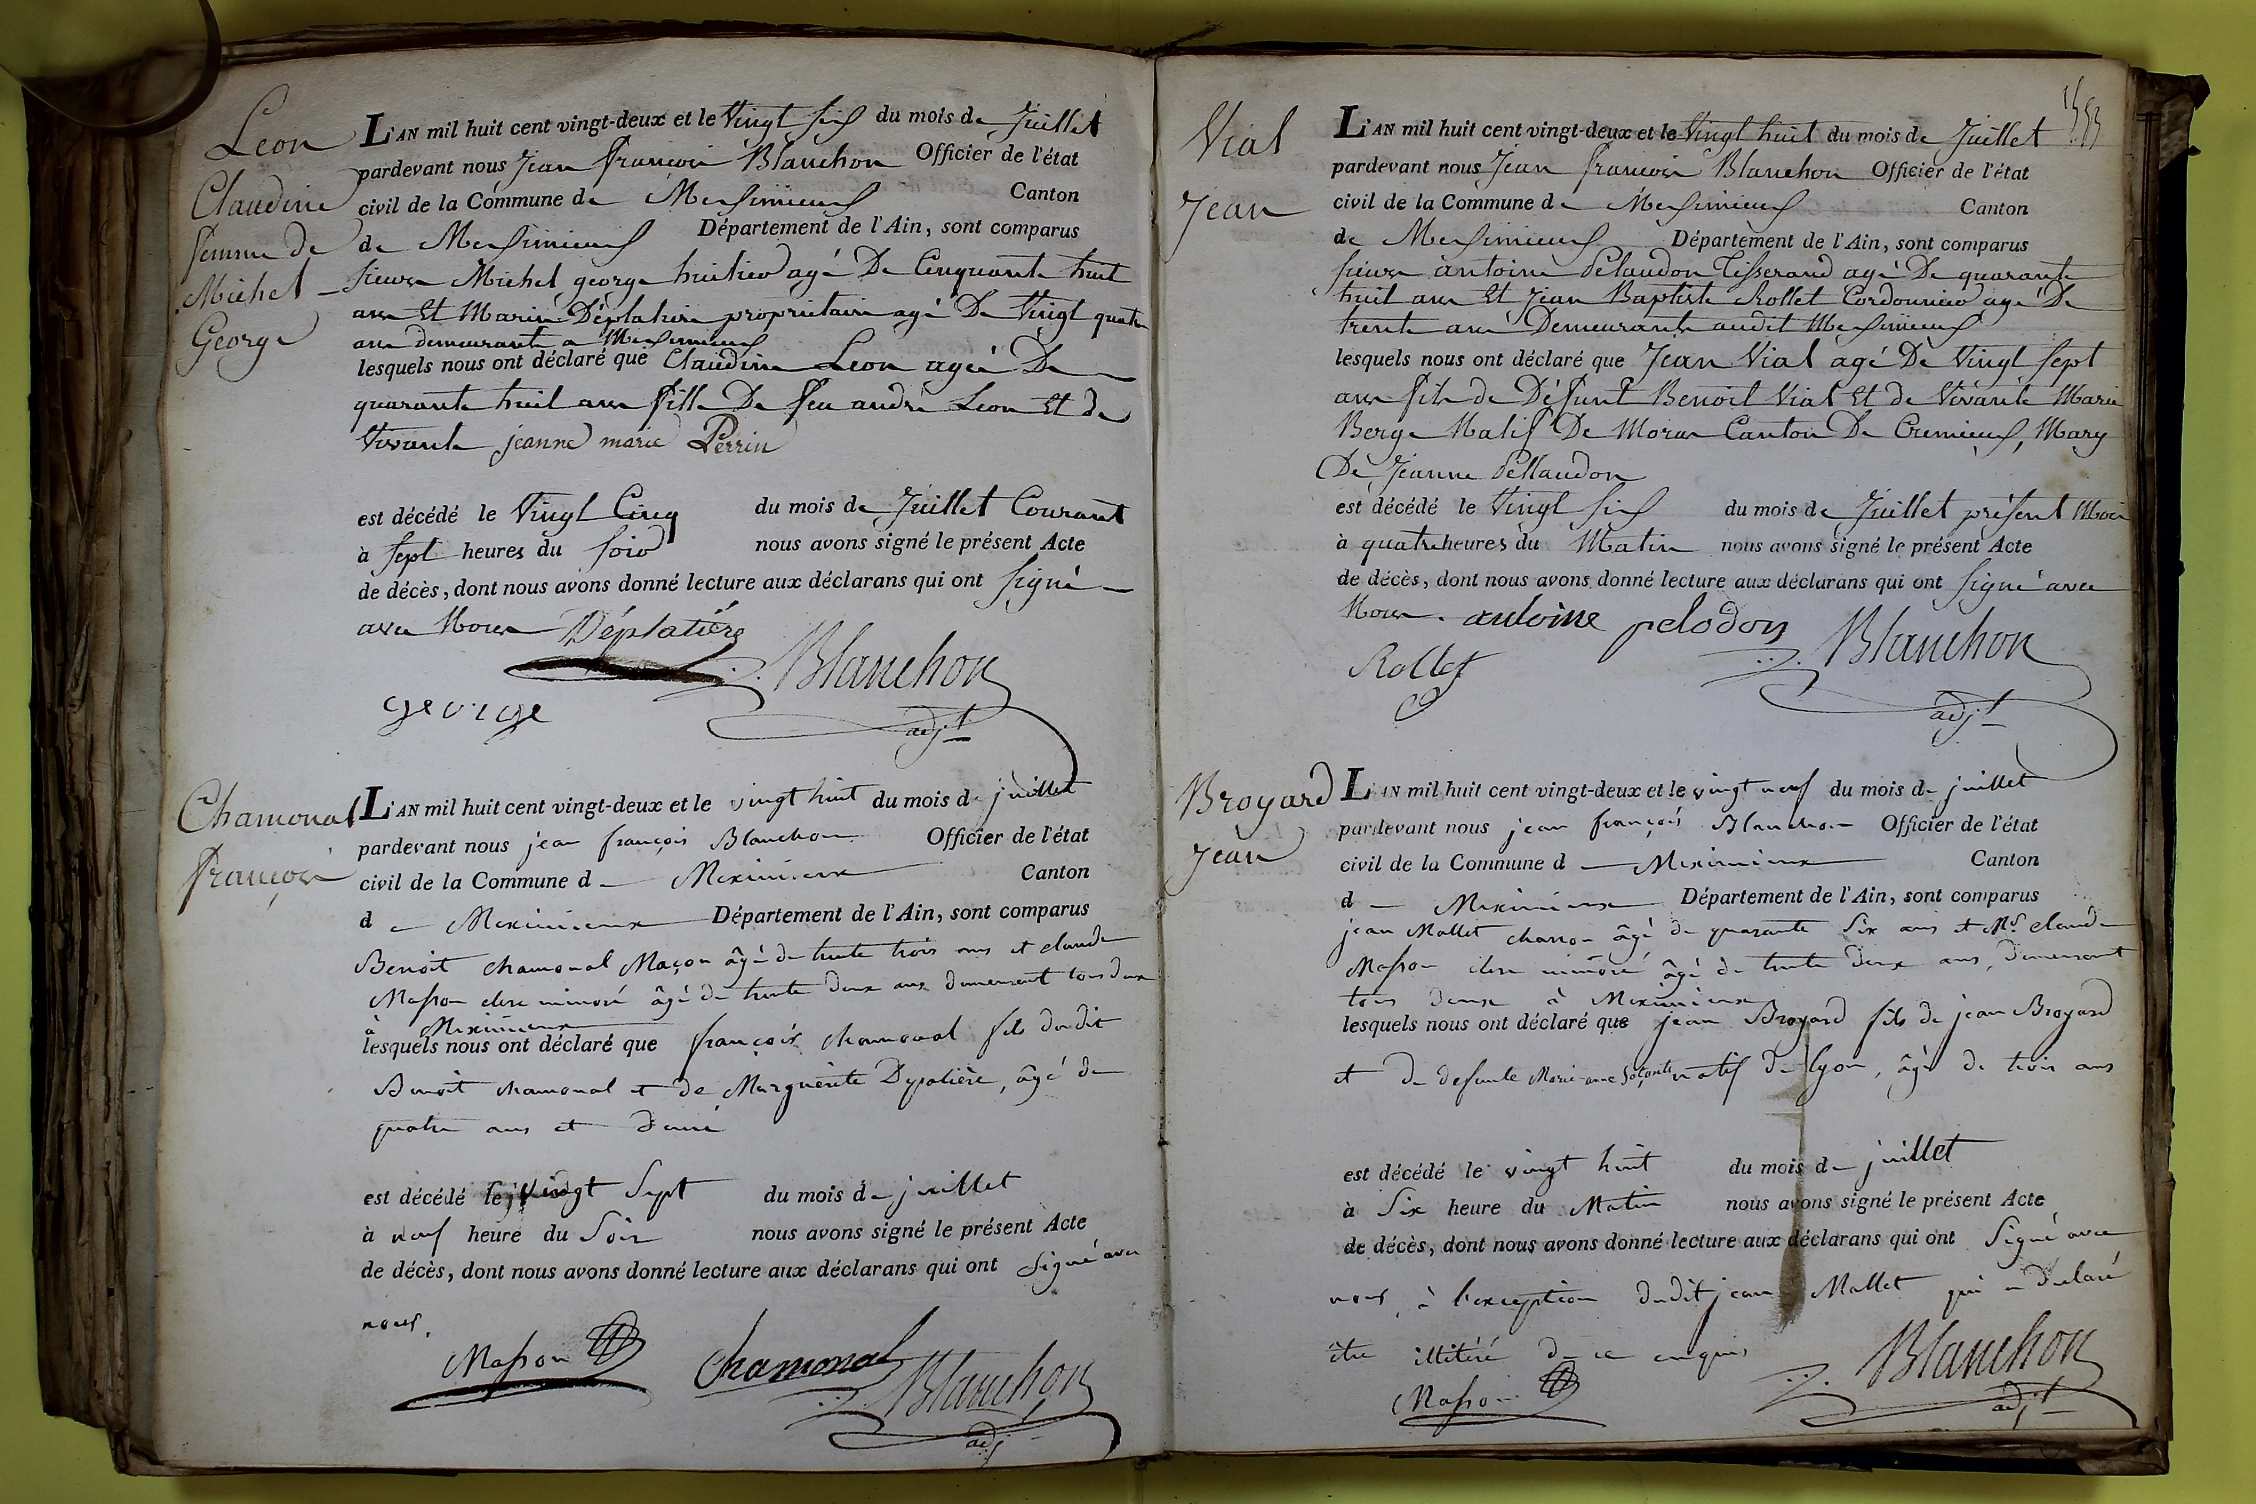 Leon
Claudine
femme de
Michel
George
L'AN mil huit cent vingt-deux et le Vingt six du mois de Juillet
pardevant nous Jean francois Blanchon Officier de l'état
civil de la Commune de Messimieux Canton
de Messimieux Département de l'Ain, sont comparus
sieurs Michel george huissier agé De Cinquante huit
ans Et Marin Déplatière propriétaire agé De Vingt quatre
ans demeurants a Messimieux
lesquels nous ont déclaré que Claudine Leon agée De
quarante huit ans fille De feu andré Leon Et de
Vivante jeanne marie Perrin
est décédé le Vingt Cinq du mois de Juillet Courant
à sept heures du soir nous avons signé le présent Acte
de décès, dont nous avons donné lecture aux déclarans qui ont signé
avec Nous Déplatière
Blanchon
george
adj.t
Chamonal
françois
L'AN mil huit cent vingt-deux et le vingt huit du mois de juillet
pardevant nous jean françois Blanchon Officier de l'état
civil de la Commune d Meximieux Canton
d Meximieux Département de l'Ain, sont comparus
Benoit chamonal Maçon âgé de trente trois ans et claude
Masson clerc minoré âgé de trente deux ans demeurant tous deux
à Meximieux
lesquels nous ont déclaré que françois chamonal fils dudit
Benoit chamonal et de Marguerite Dépalière, âgé de
quatre ans et demi
est décédé le vingt sept du mois de juillet
à neuf heure du Soir nous avons signé le présent Acte
de décès, dont nous avons donné lecture aux déclarans qui ont signé avec
nous.
Masson Chamonal Blanchon
adj
1583
Vial
Jean
L'AN mil huit cent vingt-deux et le Vingt huit du mois de Juillet
pardevant nous Jean francois Blanchon Officier de l'état
civil de la Commune de Messimieux Canton
de Messimieux Département de l'Ain, sont comparus
sieurs antoine Pelaudon Tisserand agé De quarante
huit ans Et Jean Baptiste Rollet Cordonnier agé De
trente ans Demeurants audit Messimieux
lesquels nous ont déclaré que Jean Vial agé De Vingt sept
ans fils de Défunt Benoit Vial Et de Vivante Marie
Berge Natif De Moras Canton De Cremieux, Mary
De Jeanne Pellaudon
est décédé le Vingt six du mois de Juillet présent Mois
à quatre heures du Matin nous avons signé le présent Acte
de décès, dont nous avons donné lecture aux déclarans qui ont signé avec
Nous. antoine pelodon Blanchon
Rollet
adj.t
Broyard
Jean
L'AN mil huit cent vingt-deux et le vingt neuf du mois de juillet
pardevant nous jean françois Blanchon Officier de l'état
civil de la Commune d Meximieux Canton
d Meximieux Département de l'Ain, sont comparus
jean Mallet charron âgé de quarante Six ans et Mr. claude
Masson clerc minoré âgé de trente deux ans, demeurant
tous deux à Meximieux
lesquels nous ont déclaré que jean Broyard fils de jean Broyard
et de defunte Marie anne natif de Lyon, âgé de trois ans
est décédé le vingt huit du mois de juillet
à Six heure du Matin nous avons signé le présent Acte
de décès, dont nous avons donné lecture aux déclarans qui ont Signé avec
nous, à l'exception dudit jean Mallet qui a déclaré
être illitéré de ce enquis
Blanchon
Masson adj.t